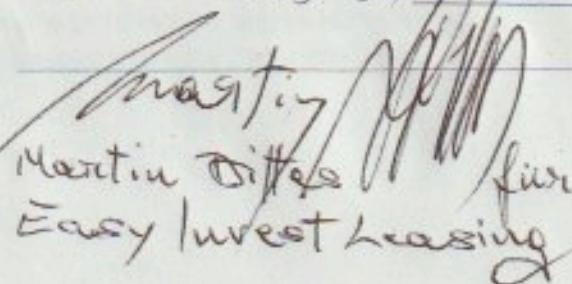 Martin
Martin Dittes für
Easy Invest Leasing